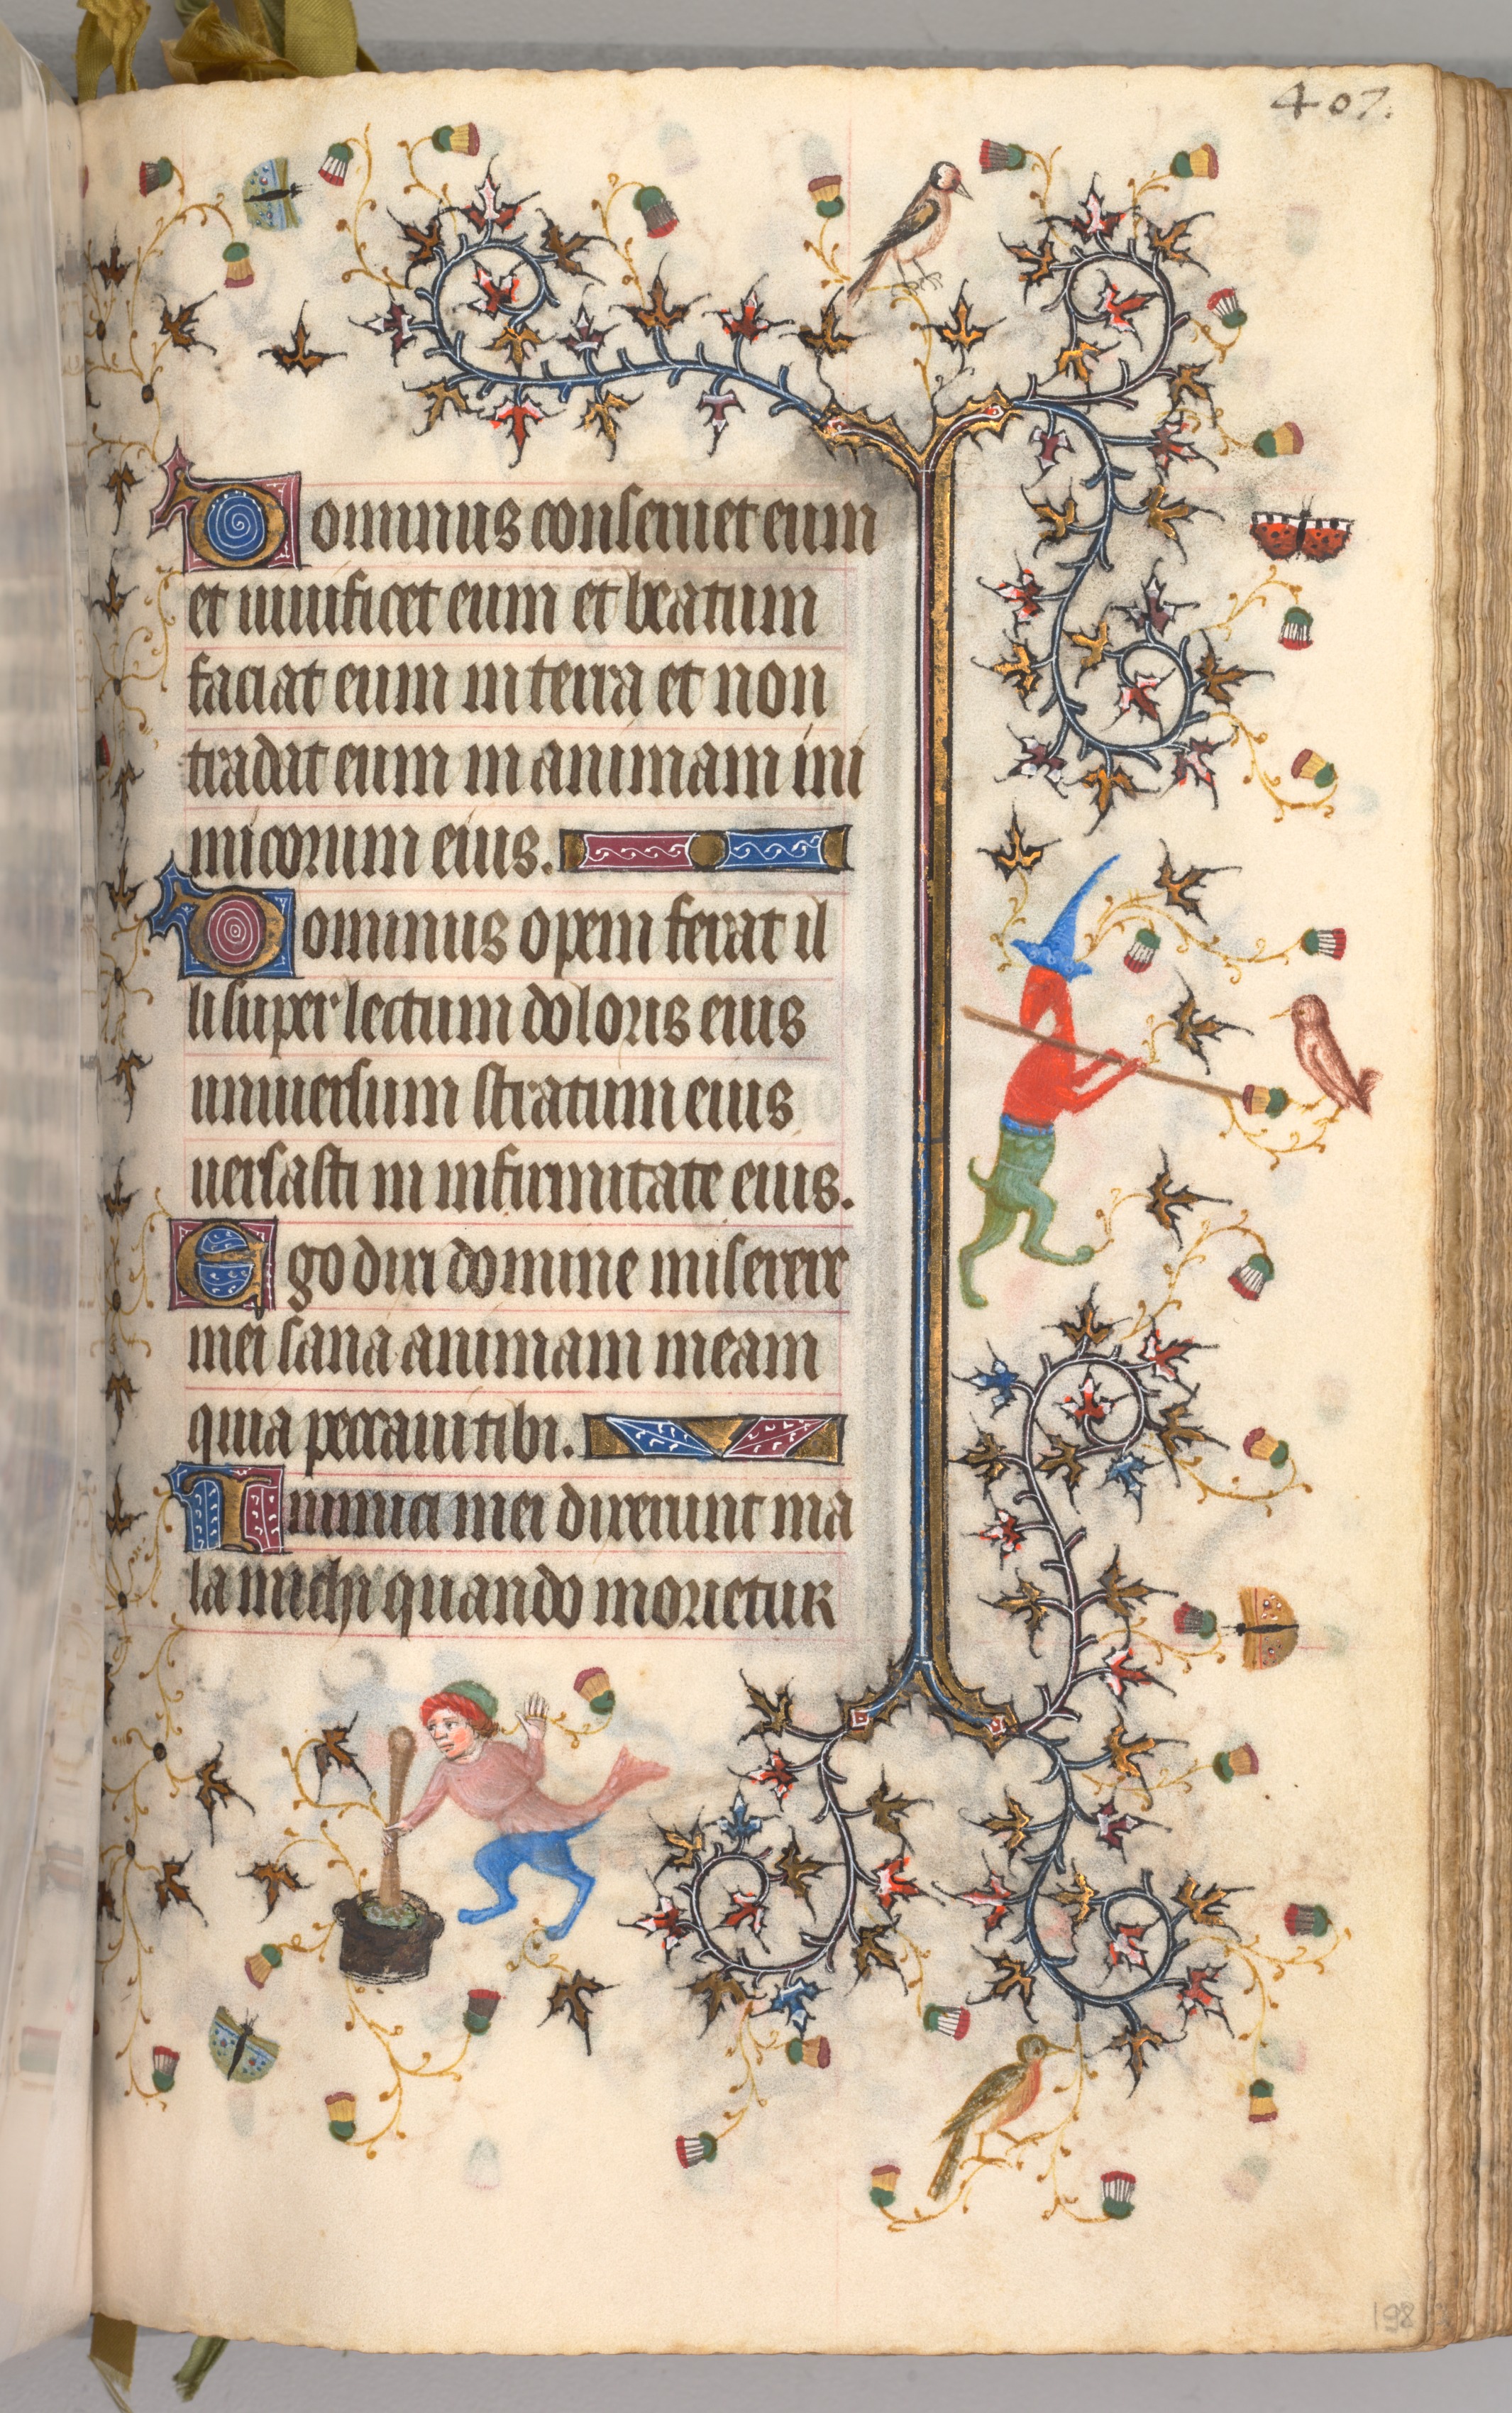 407.
Dominus conseruet eum
et uiuificet eum et beatum
faciat eum in terra et non
tradat eum in animam ini
micorum eius.
Dominus opem ferat il
li super lectum doloris eius
uniuersum stratum eius
uersasti in infirmitate eius.
Ego dixi domine miserere
mei sana animam meam
quia peccaui tibi.
Inimici mei dixerunt ma
la michi quando morietur
198